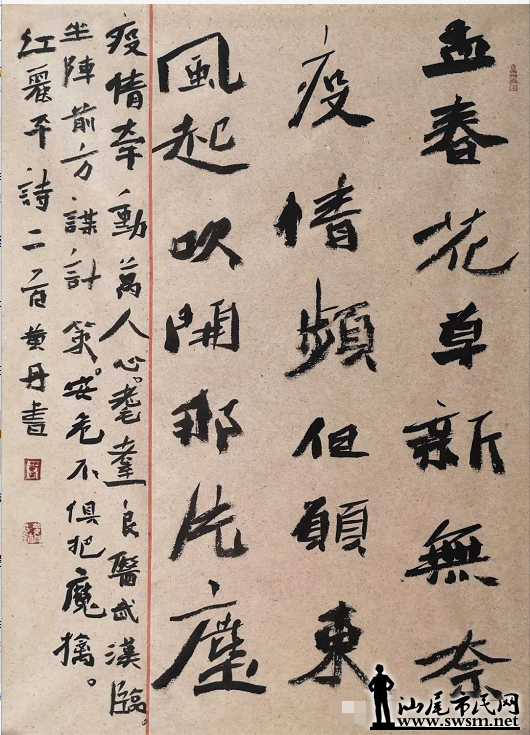 孟春花草新無奈
疫情頻但願東
風起吹開那片塵
疫情牽動萬人心。耄耋良醫武漢臨。
坐陣前方謀計策。安危不俱把魔擒。
红平詩二首黄丹書
汕尾市民网
www.swsm.net